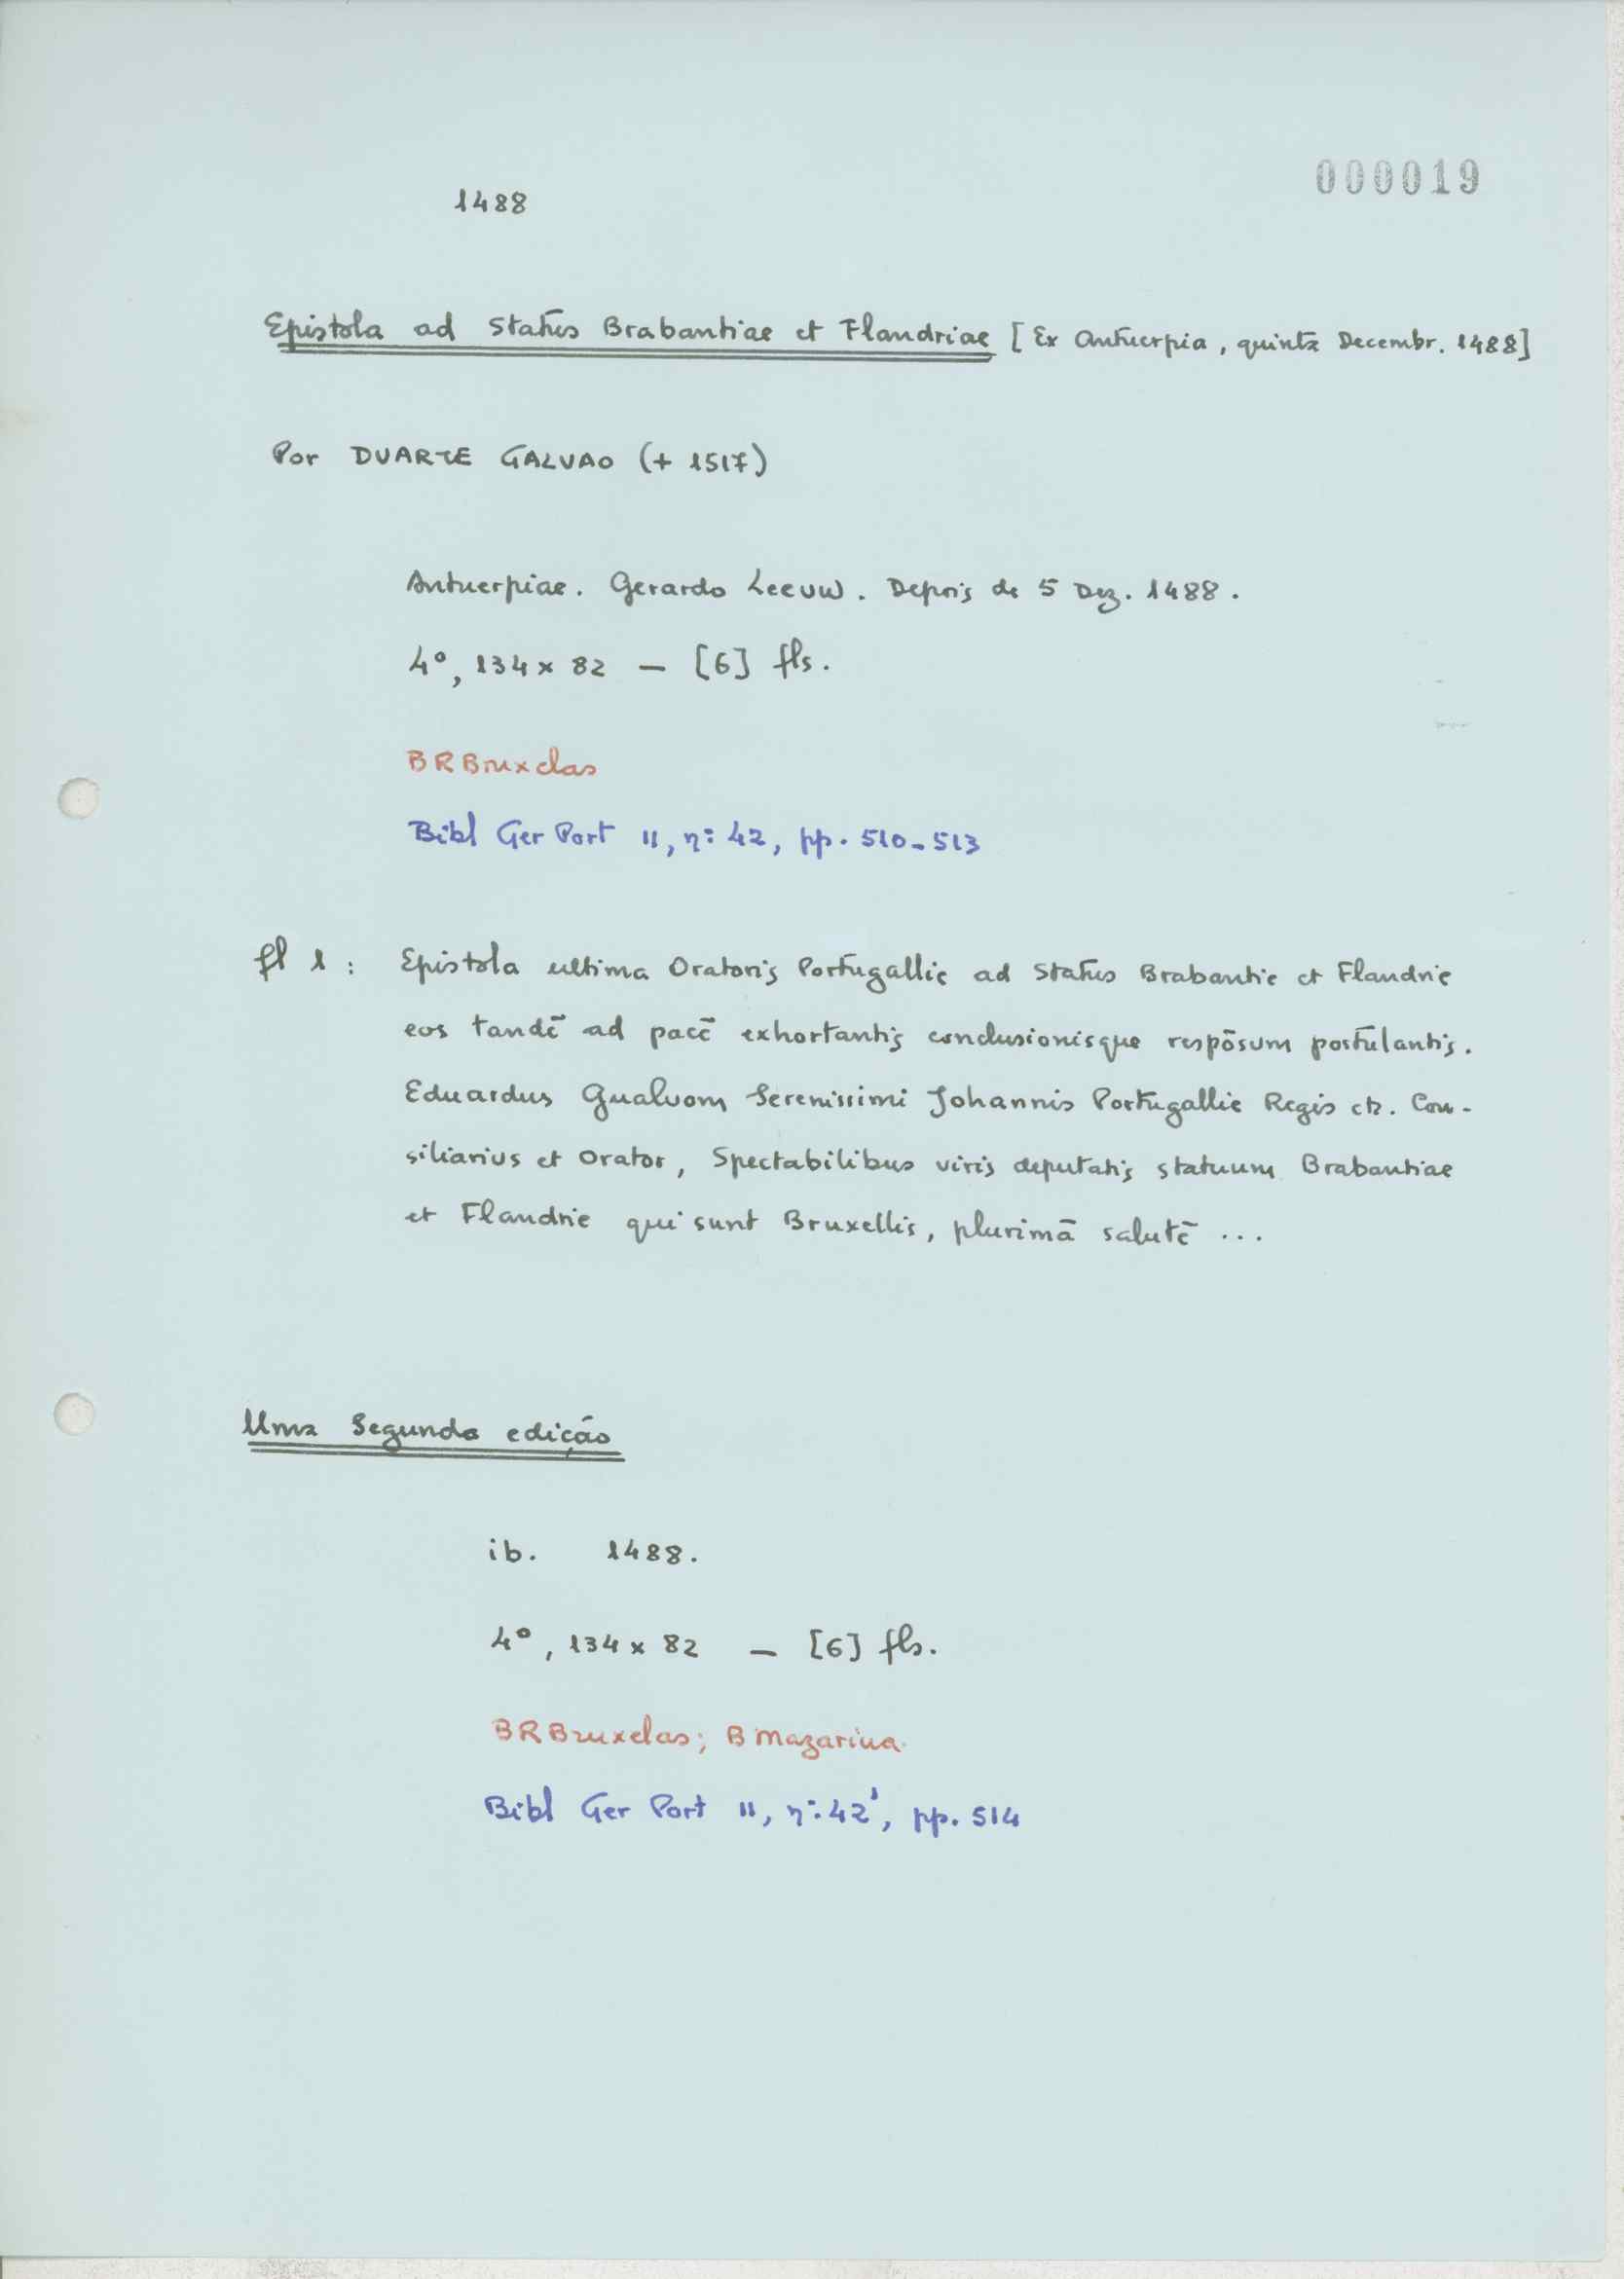 000019
1488
Epistola ad Status Brabantiae et Flandriae [Ex Antuerpia, quinta Decembr. 1488]
Por DUARTE GALVAO (+ 1517)
Antuerpiae. Gerardo Leeuw. Depois de 5 Dez. 1488.
4º, 134 x 82 — [6] fls.
BRBruxelas
Bibl Ger Port II, nº 42, pp. 510-513
fl 1: Epistola ultima Oratoris Portugallie ad Status Brabantie et Flandrie
eos tandē ad pacē exhortantis conclusionisque respōsum postulantis.
Eduardus Gualvom Serenissimi Johannis Portugallie Regis etc. Con-
siliarius et Orator, Spectabilibus viris deputatis statuum Brabantiae
et Flandrie qui sunt Bruxellis, plurimā salutē ...
Uma Segunda edição
ib. 1488.
4º, 134 x 82 — [6] fls.
BRBruxelas; B Mazarina
Bibl Ger Port II, nº 42', pp. 514